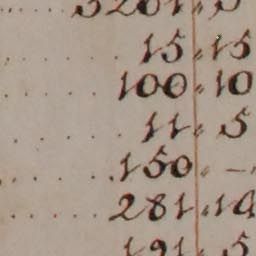 3281. 5
15. 15
100. 10
11. 5
150. -
281. 14
191. 5